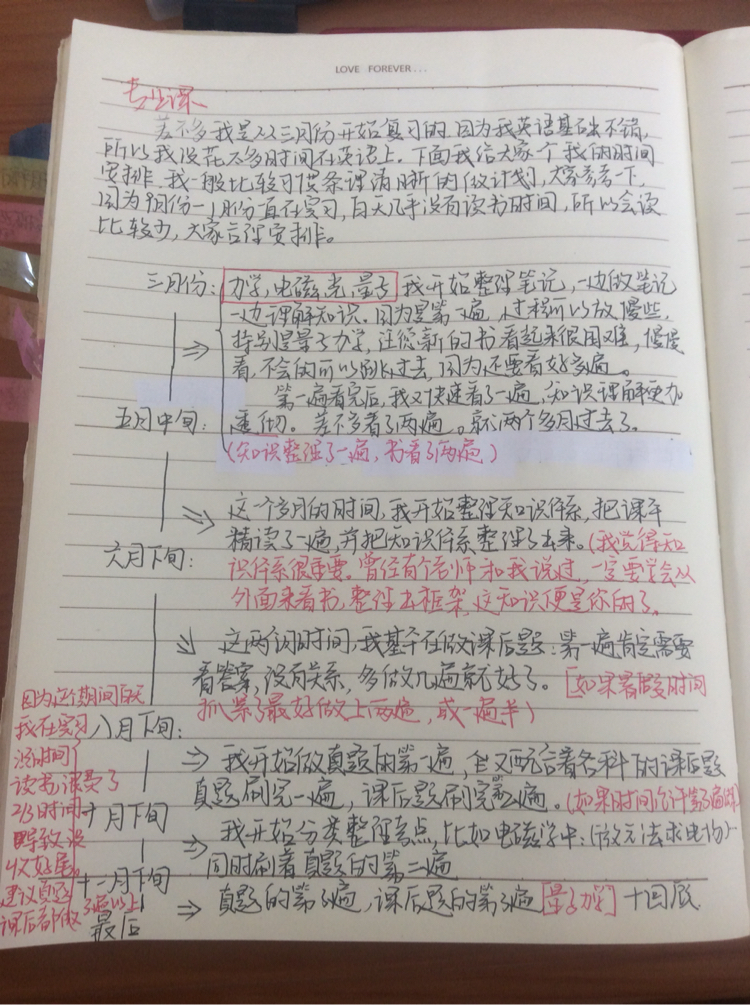 LOVE FOREVER...
专业课
差不多我是22三月份开始复习的.因为我英语基础不错,
所以我没花太多时间在英语上.下面我给大家个我的时间
安排.我一般比较习惯条理清晰的做计划,大家参考一下.
因为9月份-1月份一直在实习,白天几乎没有读书时间,所以会读
比较少,大家合理安排。
三月份:
力学,电磁,光,量子 我开始整理笔记,一边做笔记
一边理解知识。因为是第一遍,过程可以放慢些,
特别是量子力学,让您新的书看起来很困难,慢慢
看,不会的可以跳过去,因为还要看好多遍。
第一遍看完后,我又快速看了一遍,知识理解更加
透彻。差不多看了两遍。就两个多月过去了。
(知识整理了一遍,书看了两遍)
五月中旬:
这一个多月的时间,我开始整理知识体系,把课本
精读了一遍,并把知识体系整理了出来。(我觉得知
识体系很重要。曾经有个老师和我说过,一定要学会从
外面来看书,整理出框架,这知识便是你的了。
六月下旬:
这两个月时间,我基本在做课后题:第一遍肯定需要
看答案,没有关系,多做几遍就好了。[如果暑假时间
抓紧了最好做上两遍,或一遍半)
八月下旬:
我开始做真题的第一遍,全又配合着各科的课后题
真题刷完一遍,课后题刷完第二遍。(如果时间允许第3遍
十月下旬
我开始分类整理考点,比如电磁学中:(微元法求电场)
同时刷着真题的第二遍
十二月下旬
真题的第3遍,课后题的第3遍[量子力学]十回顾
最后
因为这个期间白天
我在实习
没时间
读书浪费了
2/3时间
导致没
收好尾。
建议真题
3遍以上
课后都做